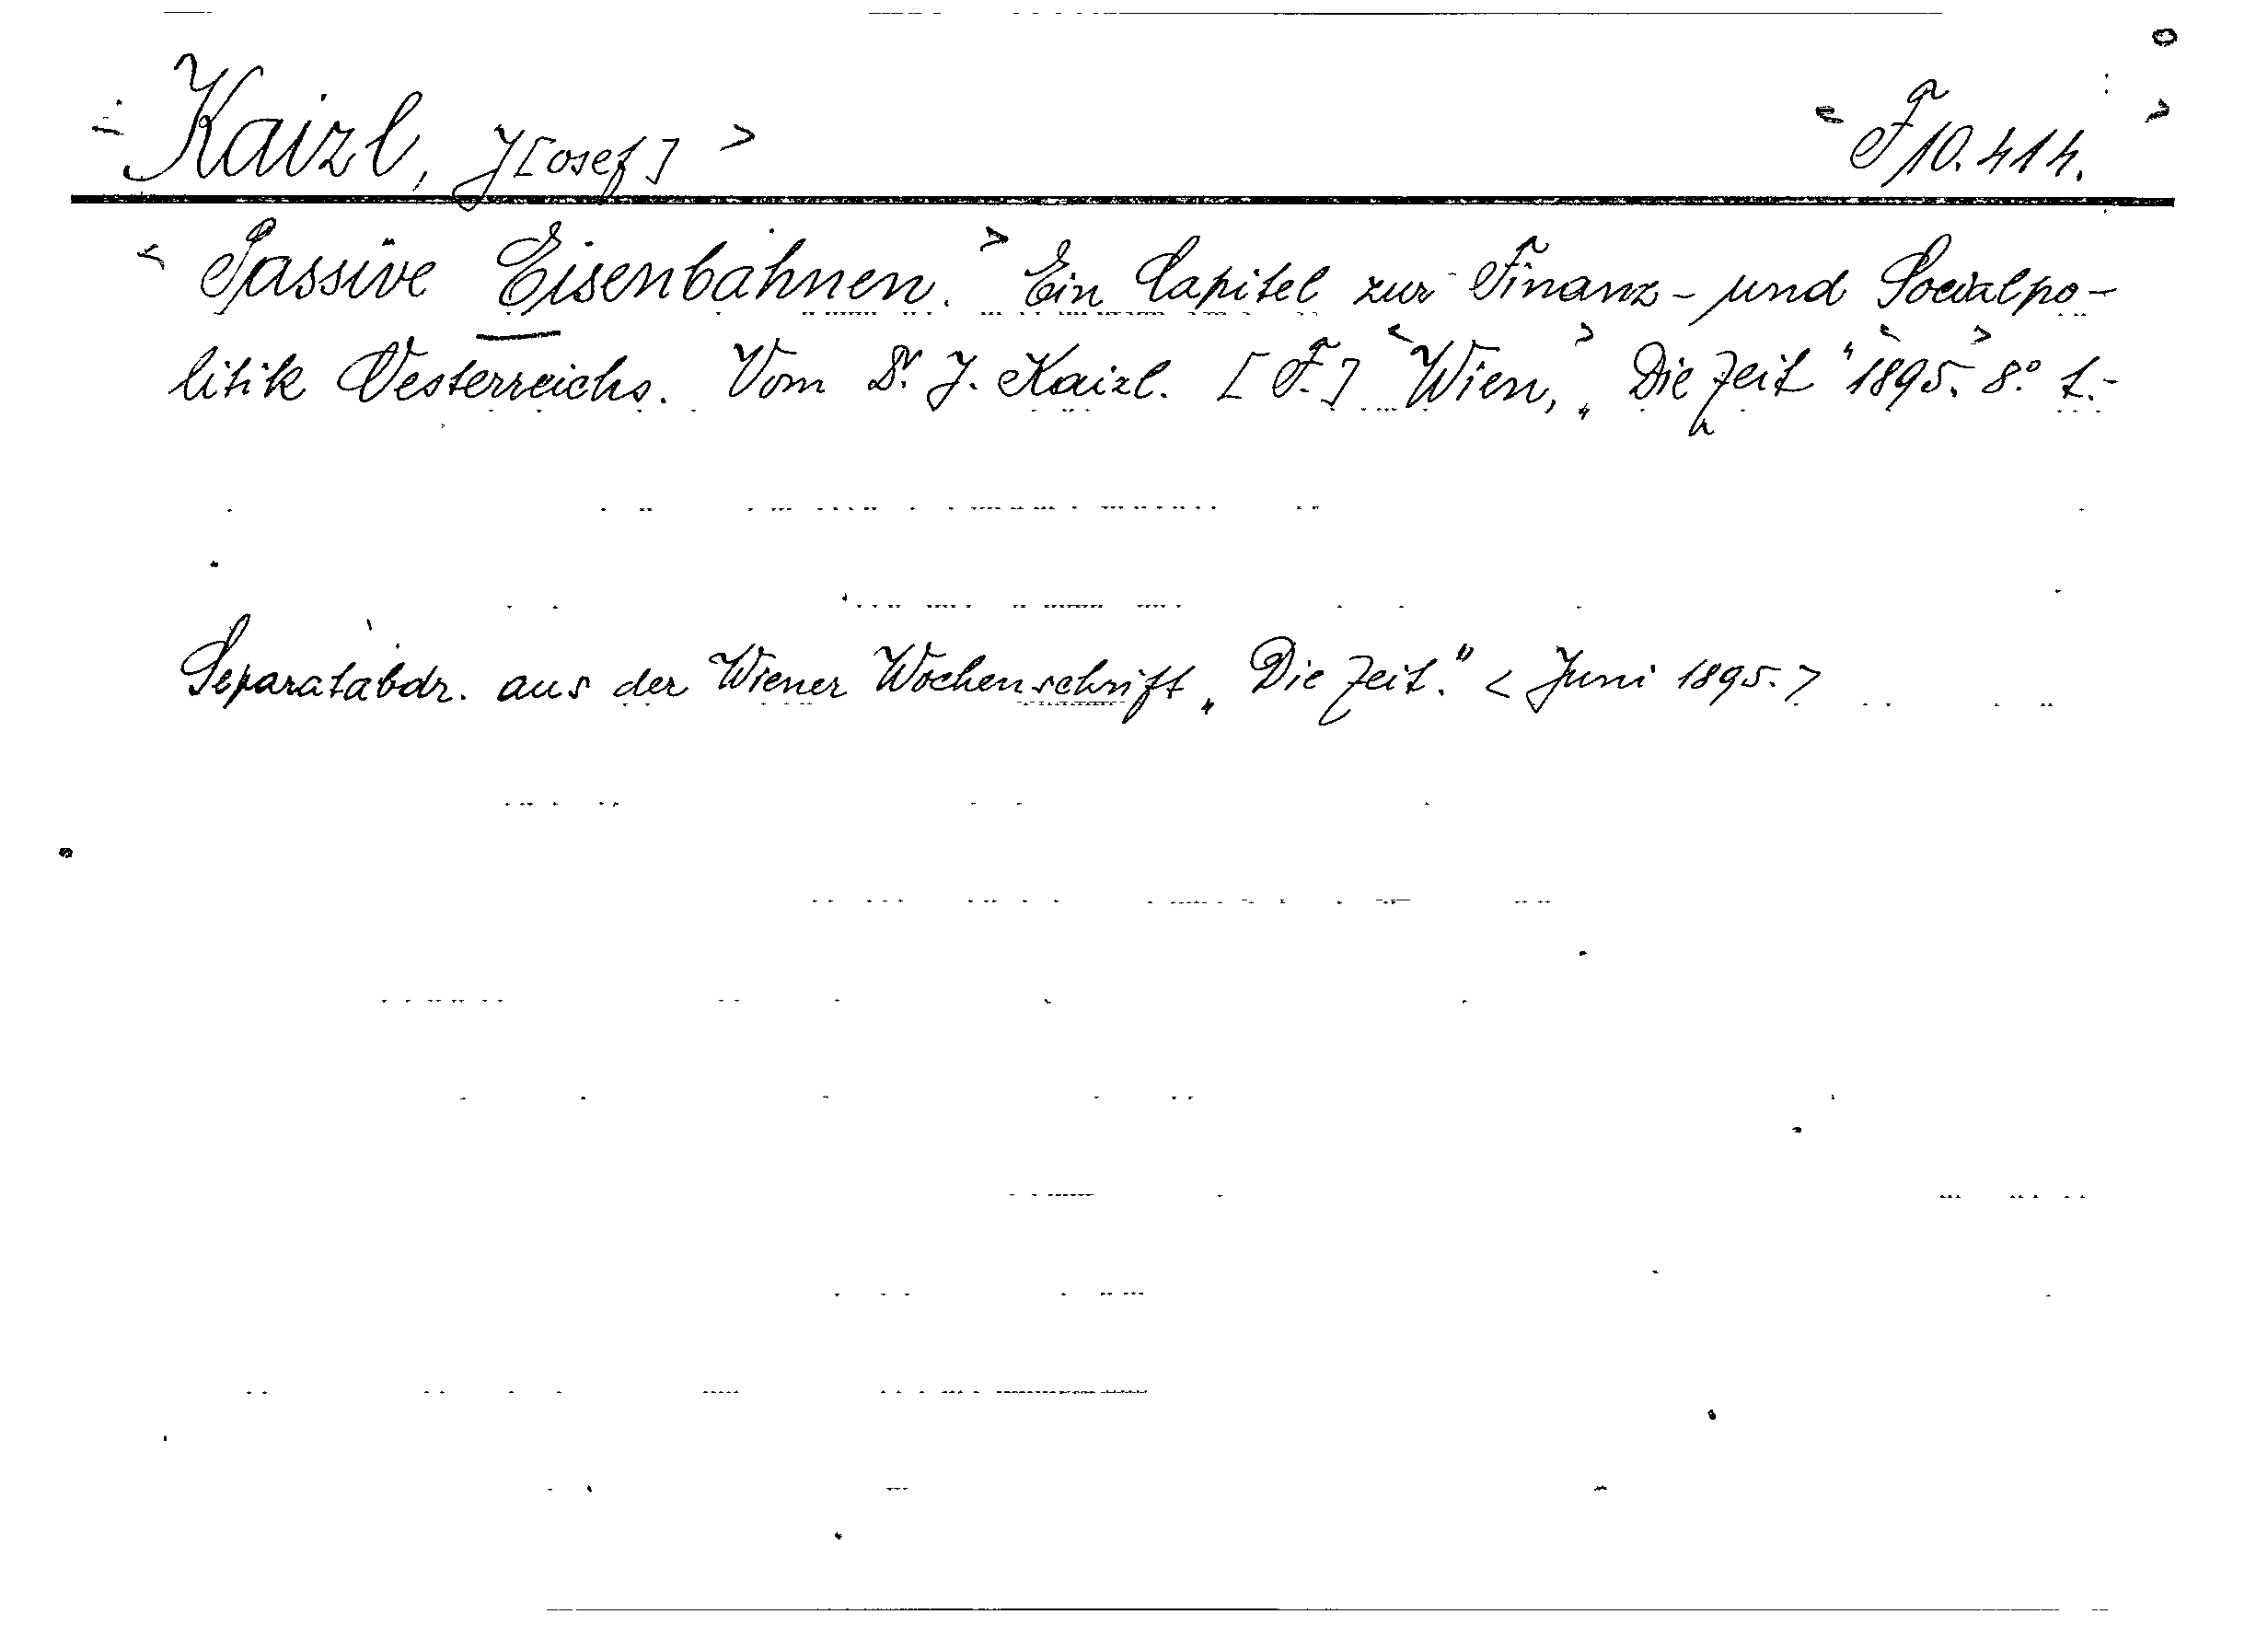 < Kaizl, J[osef] > < F 10.414. >
< Passive Eisenbahnen. > Ein Capitel zur Finanz- und Socialpo-
litik Oesterreichs. Vom Dr. J. Kaizl. [F.] <Wien,> „Die Zeit" <1895.> 8.° 1.-
Separatabdr. aus der Wiener Wochenschrift „Die Zeit." < Juni 1895. >